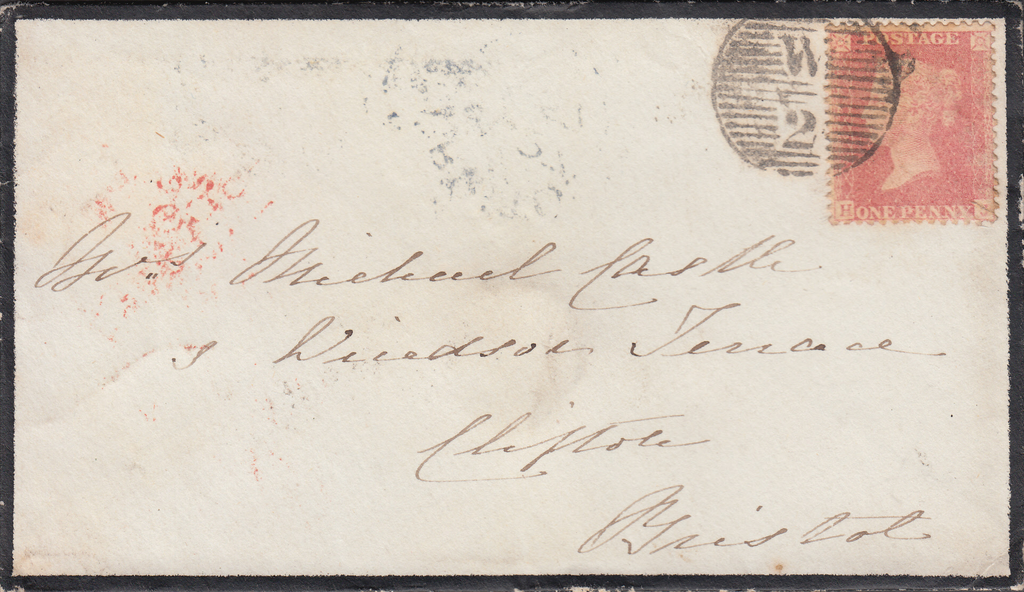 W
2
POSTAGE
H ONE PENNY
Mrs Michael Castle
Windsor Terrace
Clifton
Bristol